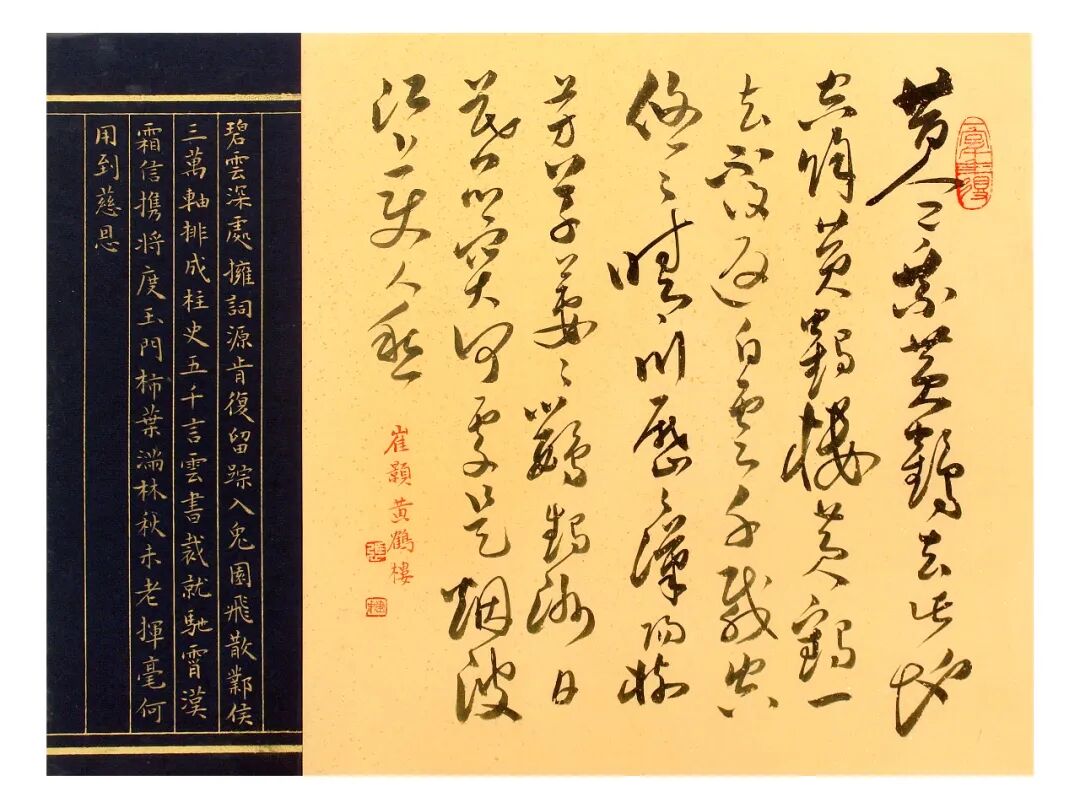 昔人已乘黄鶴去此地
空餘黄鶴樓黄鶴一
去不復返白雲千載空
悠悠晴川歷歷漢陽樹
芳草萋萋鸚鵡洲日
暮鄉關何處是烟波
江上使人愁
崔顥黄鶴樓
碧雲深處擁詞源肯復留踪入兔園飛散鄴侯
三萬軸排成柱史五千言雲書裁就馳霄漠
霜信携將度玉門柿葉滿林秋未老揮毫何
用到慈恩